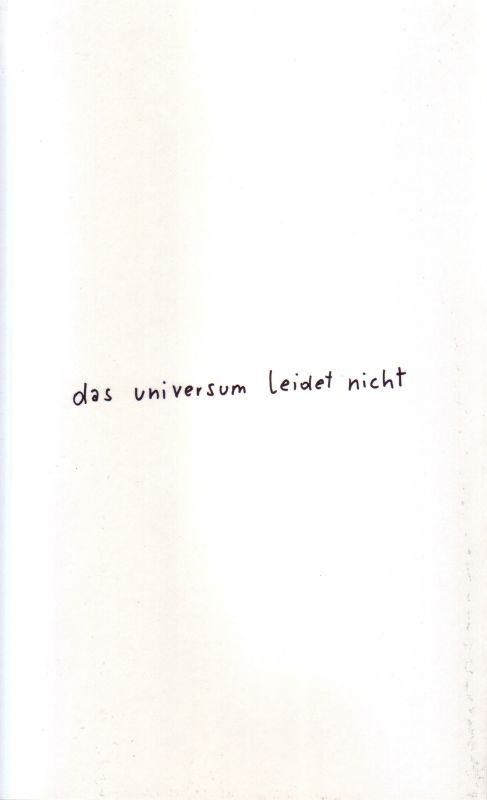 das universum leidet nicht